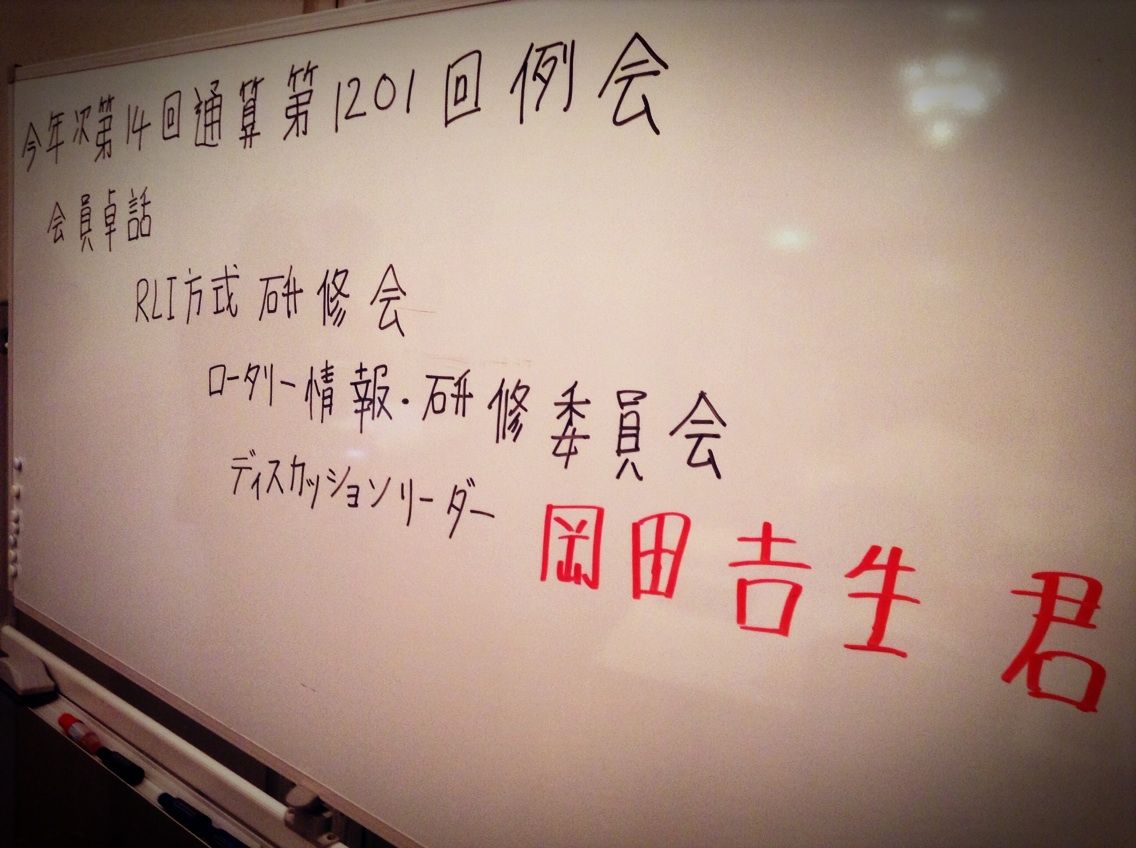 今年次第14回通算第1201回例会
会員卓話
RLI方式研修会
ロータリー情報・研修委員会
ディスカッションリーダー
岡田吉生君